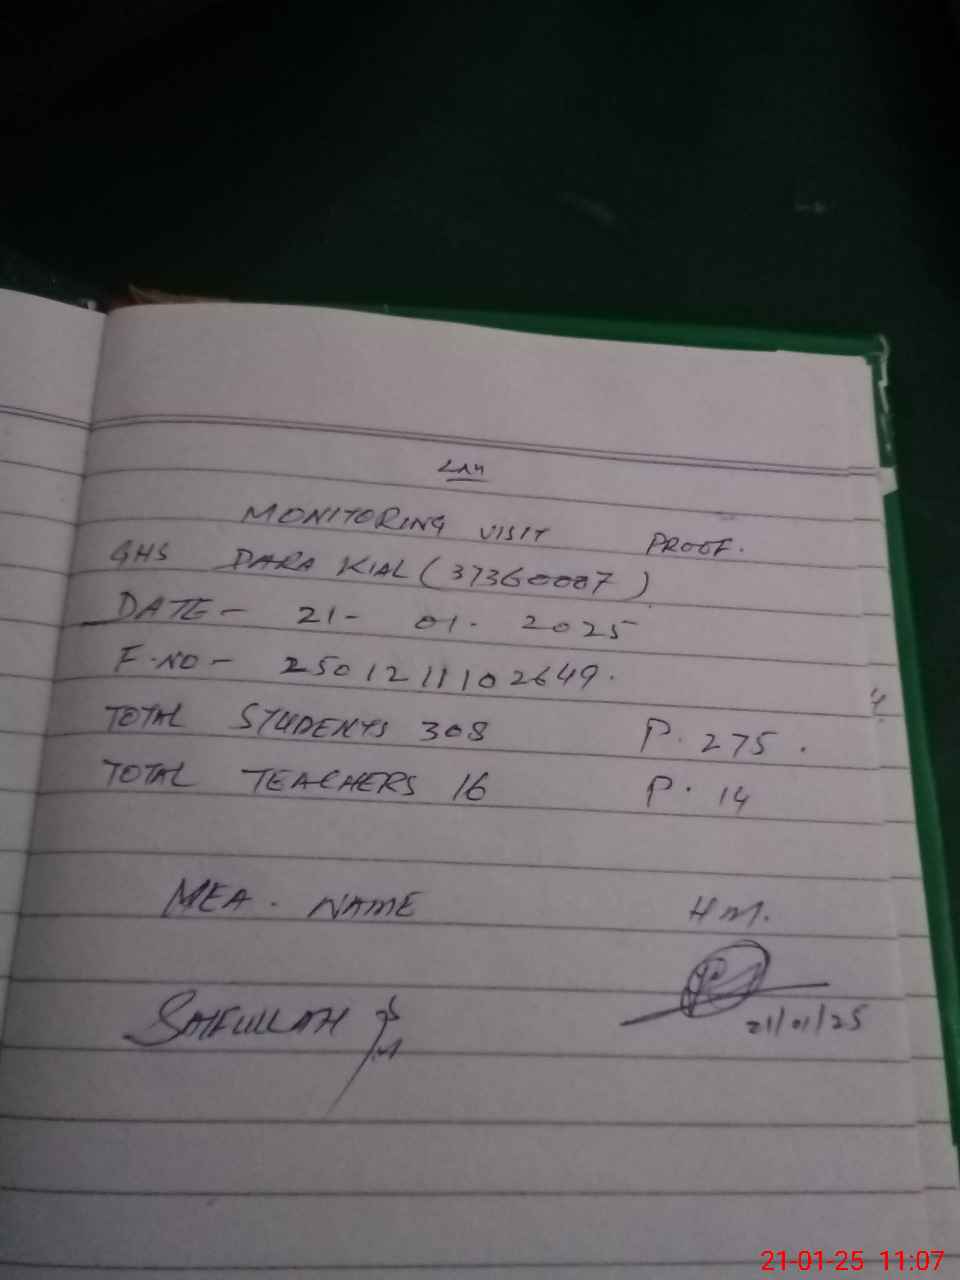 MONITORING VISIT PROOF.
GHS DARA KIAL (37360007)
DATE - 21- 01. 2025
F.NO - 2501211102649.
TOTAL STUDENTS 308 P. 275.
TOTAL TEACHERS 16 P. 14
MEA. NAME H.M.
SAIFULLAH
21/01/25
21-01-25 11:07